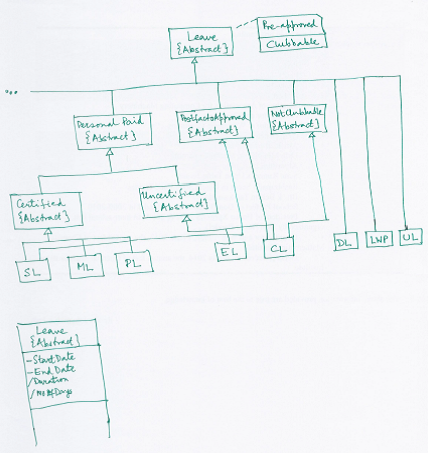 Leave
{Abstract}
Pre-approved
Clubbable
...
Personal Paid
{Abstract}
PostfactoApproved
{Abstract}
NotClubbable
{Abstract}
Certified
{Abstract}
Uncertified
{Abstract}
SL
ML
PL
EL
CL
DL
LWP
UL
Leave
{Abstract}
-Start Date
-End Date
/Duration